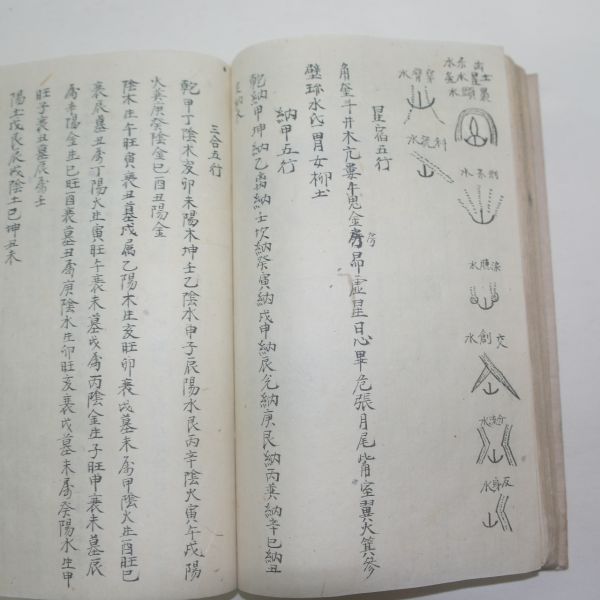 水臂穿
水蓋水
水頭裏
水城斜
水
水臆
水創交
水
水身反
星宿五行
角奎斗井木亢婁牛鬼金房昴虛星日心畢危張月尾觜室翼火箕參
壁珍水氐胃女柳土
納甲五行
乾納甲坤納乙离納壬坎納癸寅納戌申納辰兌納庚艮納丙巽納辛巳納丑
三合五行
乾甲丁陰木亥卯未陽木坤壬乙陰水申子辰陽水艮丙辛陰火寅午戌陽
火巽庚癸陰金巳酉丑陽金
陰木生午旺寅衰丑墓戌属乙陽木生亥旺卯衰戌墓未属甲陰火生酉旺巳
衰辰墓丑属丁陽火生寅旺午衰未墓戌属丙陰金生子旺申衰未墓辰
属辛陽金生巳旺酉衰墓丑属庚陰水生卯旺亥衰戌墓未属癸陽水生申
旺子衰丑墓辰属壬
陽土戌艮辰戌陰土巳坤丑未